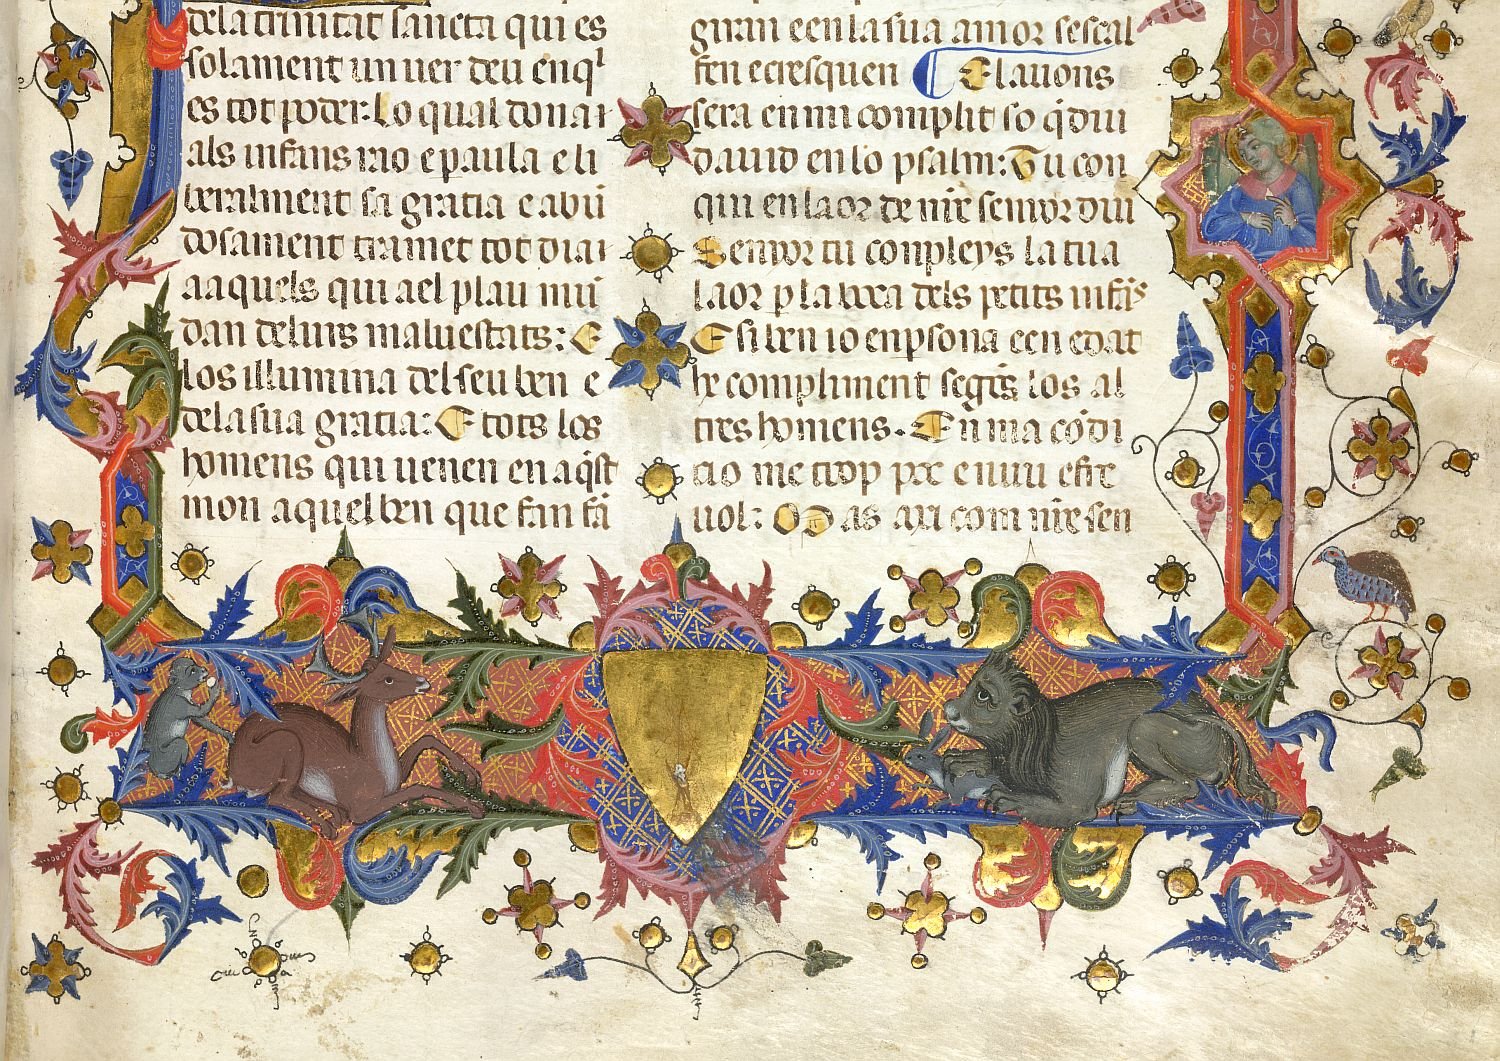 dela trinitat sancta qui es
solament un uer deu en q̃l
es tot poder: Lo qual dona i
als infans nio e paula e li
beralment sa gracia e abũ
dosament tramet tot dia i
a aquels qui ael plau mũ
dan deluis maluestats: E
los illumina del seu ben e
dela sua gracia: E tots los
homens qui uenen en aq̃st
mon aquel ben que fan fã
giran e en la sua amor sescal
fen e cresquen E lauons
sera en mi complit so q̃ diu
dauid en lo psalm: Tu con
qui en laor de nr̃e senyor diu
Senyor tu conpleys la tua
laor p̱ la boca dels petits infãs
E si ben io en psona e en edat
he compliment segõs los al
tres homens. En ma cõdi
cio me trop poc e nuu e fre
uol: Mas axi com nr̃e sen